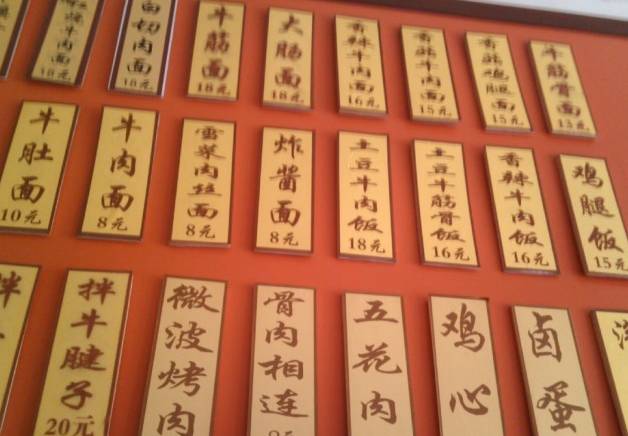 牛肉面
18元
切肉面
18元
牛筋面
18元
大肠面
18元
香辣牛肉面
16元
香菇牛肉面
15元
香菇鸡腿面
15元
牛筋骨面
13元
牛肚面
10元
牛肉面
8元
雪菜肉丝面
8元
炸酱面
8元
土豆牛肉饭
18元
土豆牛筋骨饭
16元
香辣牛肉饭
16元
鸡腿饭
15元
拌
拌牛腱子
20元
微波烤肉
骨肉相连
五花肉
鸡心
卤蛋